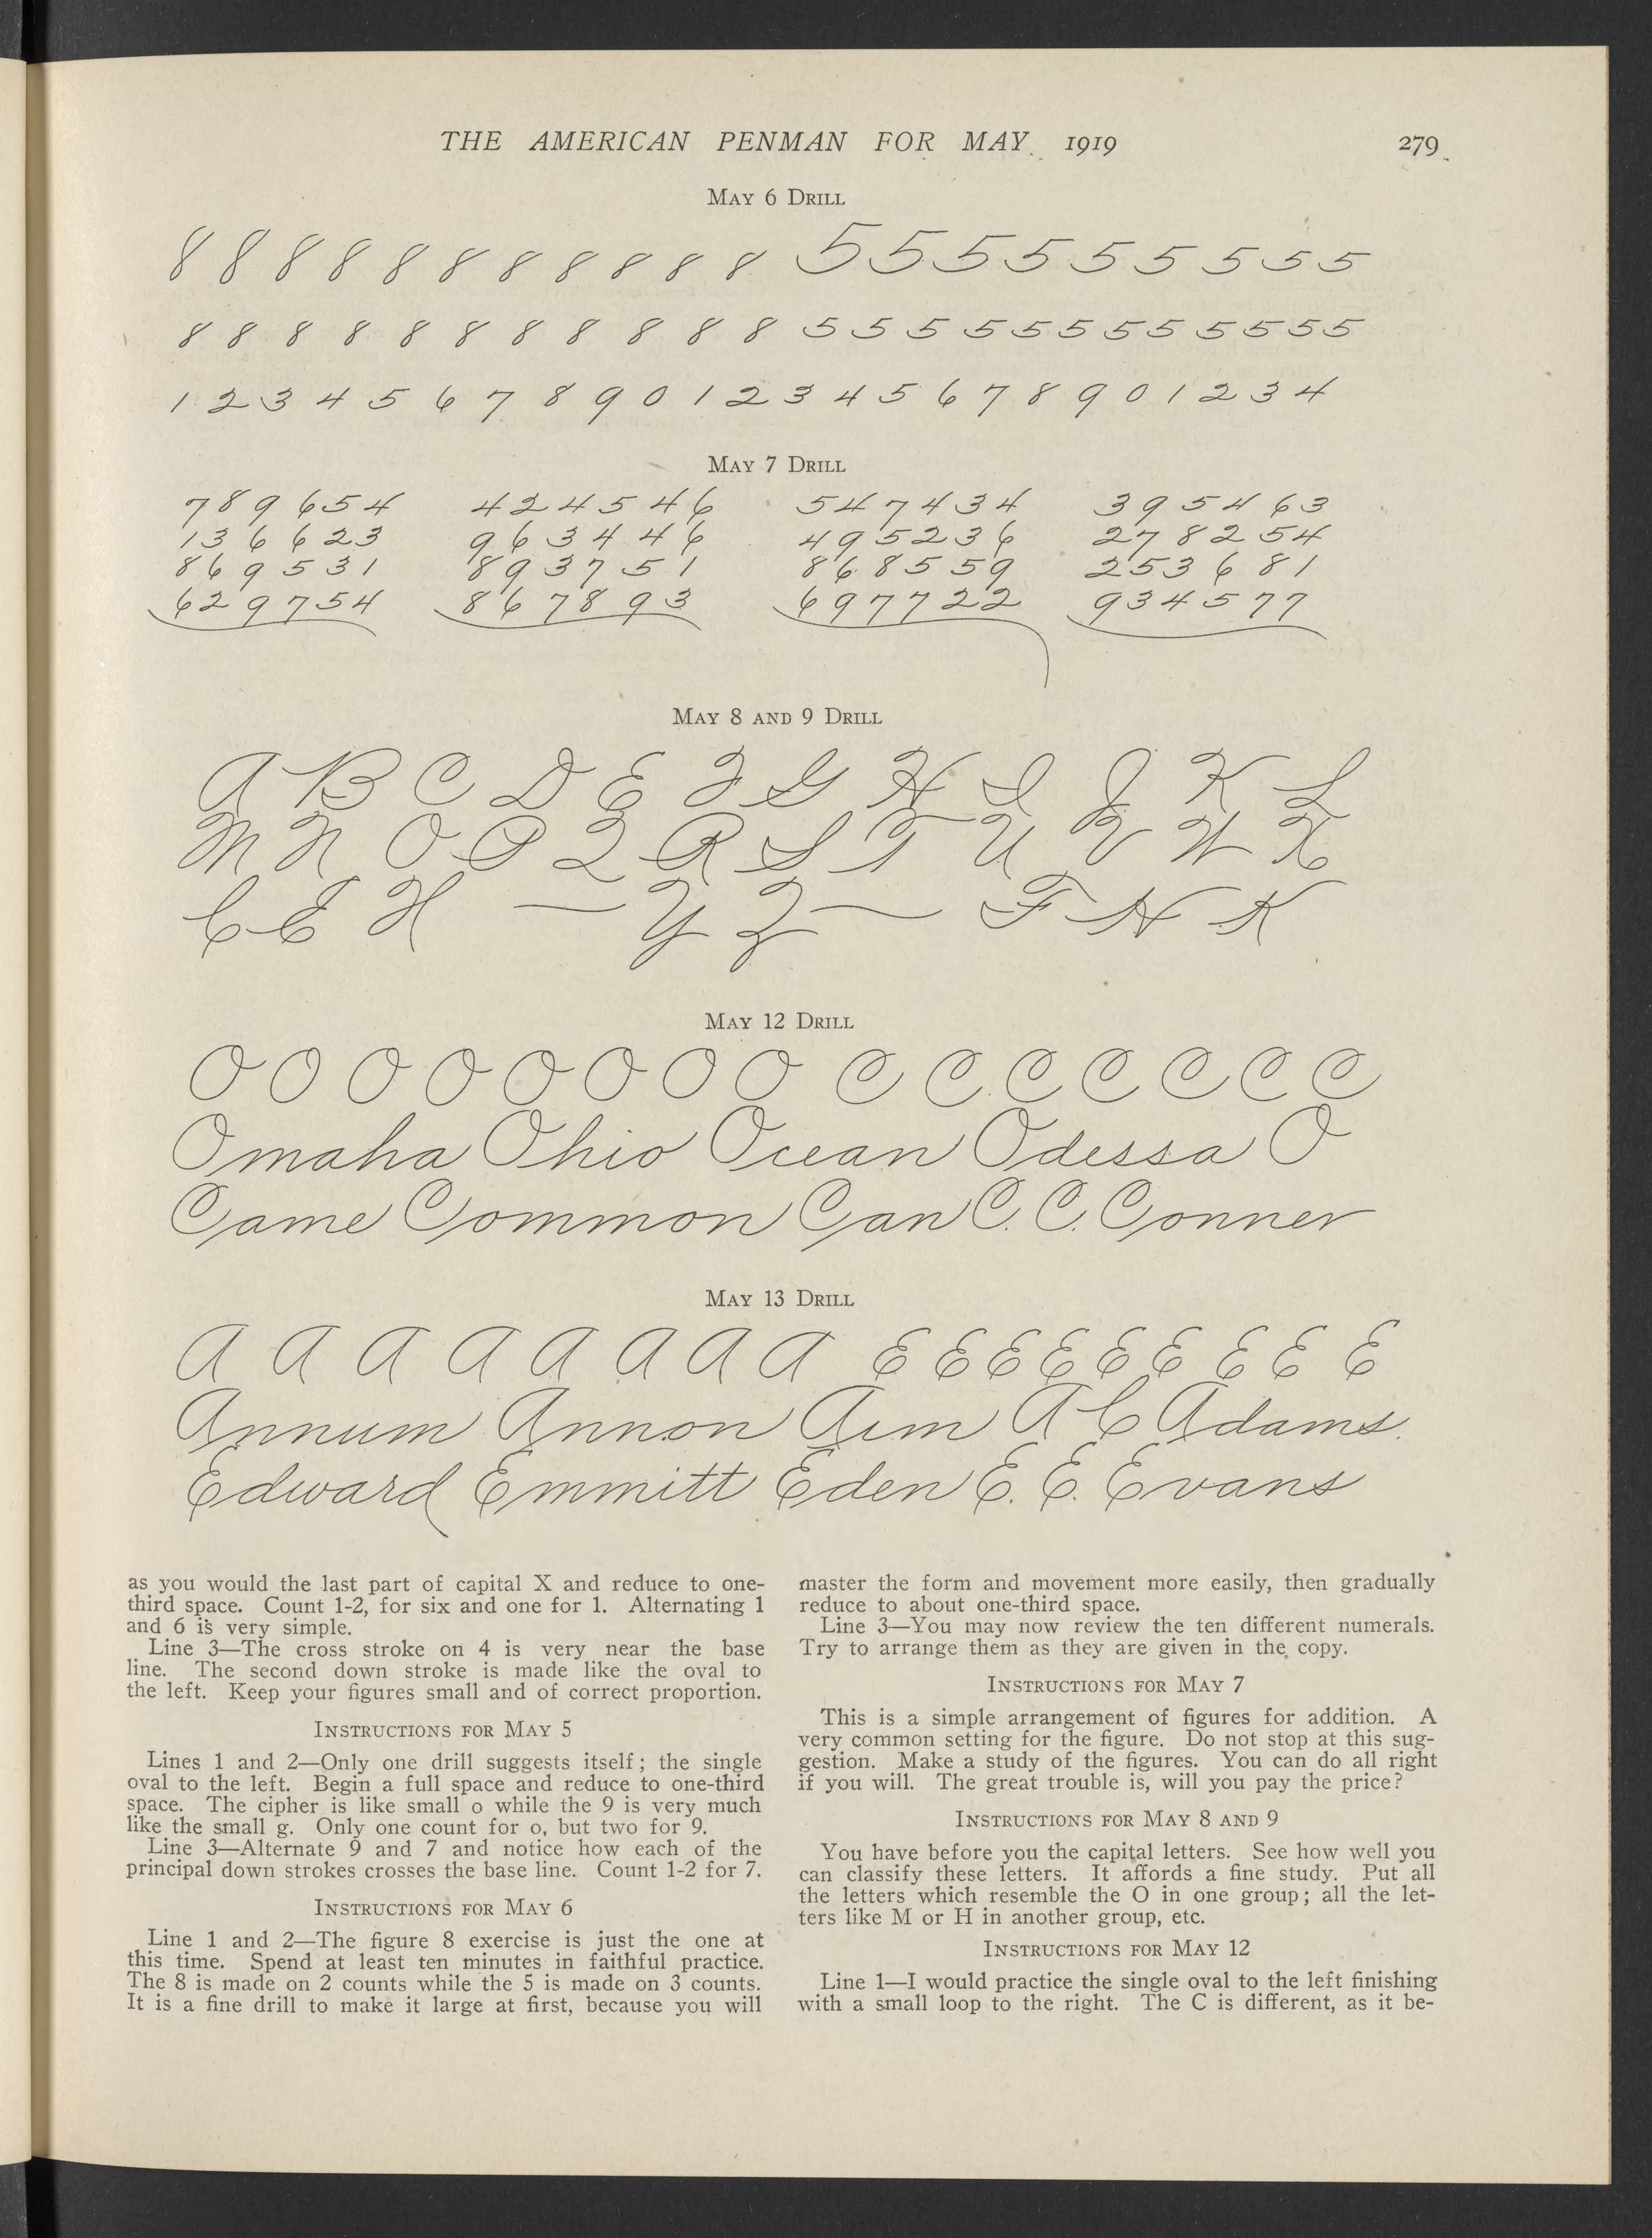 THE AMERICAN PENMAN FOR MAY 1919 279
MAY 6 DRILL
8 8 8 8 8 8 8 8 8 8 8 5 5 5 5 5 5 5 5 5
8 8 8 8 8 8 8 8 8 8 8 5 5 5 5 5 5 5 5 5 5 5 5
1 2 3 4 5 6 7 8 9 0 1 2 3 4 5 6 7 8 9 0 1 2 3 4
MAY 7 DRILL
789654 424546 547434 395463
136623 963446 495236 278254
869531 893751 868559 253681
629754 867893 697722 934577
MAY 8 AND 9 DRILL
A B C D E F G H I J K L
M N O P Q R S T U V W X
C E H — Y Z — F H K
MAY 12 DRILL
O O O O O O O O C C C C C C C
Omaha Ohio Ocean Odessa O
Came Common Can C. C. Conner
MAY 13 DRILL
A A A A A A A A E E E E E E E E E
Annum Annon Aim A C Adams.
Edward Emmitt Eden E. E. Evans
as you would the last part of capital X and reduce to one-
third space. Count 1-2, for six and one for 1. Alternating 1
and 6 is very simple.
Line 3—The cross stroke on 4 is very near the base
line. The second down stroke is made like the oval to
the left. Keep your figures small and of correct proportion.
INSTRUCTIONS FOR MAY 5
Lines 1 and 2—Only one drill suggests itself; the single
oval to the left. Begin a full space and reduce to one-third
space. The cipher is like small o while the 9 is very much
like the small g. Only one count for o, but two for 9.
Line 3—Alternate 9 and 7 and notice how each of the
principal down strokes crosses the base line. Count 1-2 for 7.
INSTRUCTIONS FOR MAY 6
Line 1 and 2—The figure 8 exercise is just the one at
this time. Spend at least ten minutes in faithful practice.
The 8 is made on 2 counts while the 5 is made on 3 counts.
It is a fine drill to make it large at first, because you will
master the form and movement more easily, then gradually
reduce to about one-third space.
Line 3—You may now review the ten different numerals.
Try to arrange them as they are given in the copy.
INSTRUCTIONS FOR MAY 7
This is a simple arrangement of figures for addition. A
very common setting for the figure. Do not stop at this sug-
gestion. Make a study of the figures. You can do all right
if you will. The great trouble is, will you pay the price?
INSTRUCTIONS FOR MAY 8 AND 9
You have before you the capital letters. See how well you
can classify these letters. It affords a fine study. Put all
the letters which resemble the O in one group; all the let-
ters like M or H in another group, etc.
INSTRUCTIONS FOR MAY 12
Line 1—I would practice the single oval to the left finishing
with a small loop to the right. The C is different, as it be-